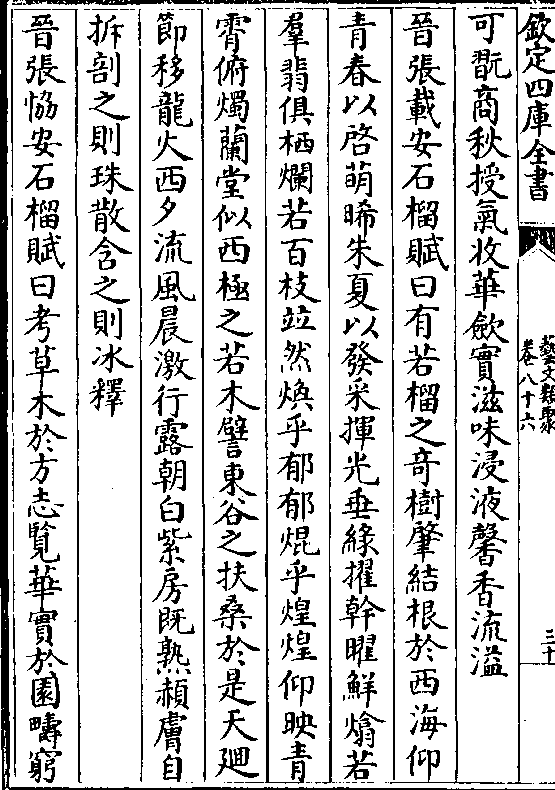 欽定四庫全書
藝文類聚
卷八十六
三十
可翫商秋授氣收華歛實滋味浸液馨香流溢
晉張載安石榴賦曰有若榴之奇樹肇結根於西海仰
青春以啓萌晞朱夏以發采揮光垂綠擢幹曜鮮熻若
羣翡俱栖爛若百枝竝然煥乎郁郁焜乎煌煌仰映青
霄俯燭蘭堂似西極之若木譬東谷之扶桑於是天廻
節移龍火西夕流風晨激行露朝白紫房既熟赬膚自
拆剖之則珠散含之則冰釋
晉張恊安石榴賦曰考草木於方志覧華實於園疇窮